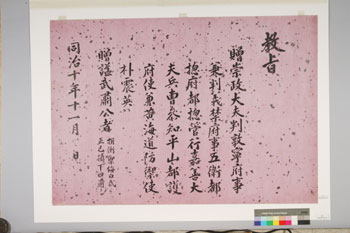 教旨
贈崇政大夫判敦寧府事
兼判義禁府事五衛都
摠府都摠管行嘉善大
夫兵曹參知平山都護
府使兼黃海道防禦使
朴震英
贈諡武肅公者
折衝禦侮曰武
正己攝下曰肅
同治十年十一月 日